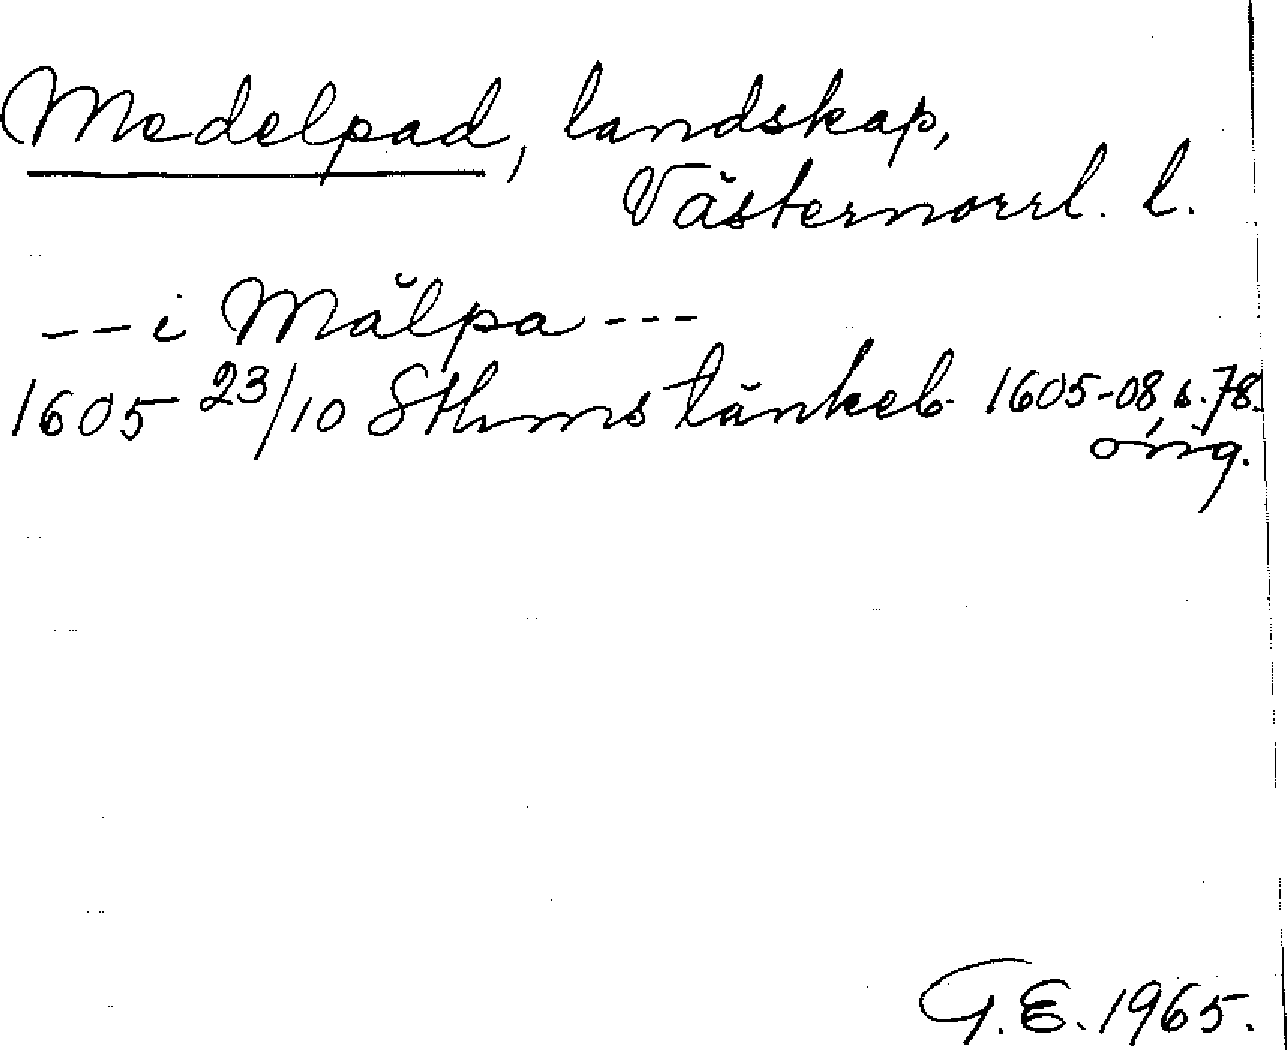 Medelpad, landskap,
Västernorrl. l.
-- i Mälpa ---
1605 23/10 Sthms tänkeb. 1605-08 s. 78.
orig.
G.E. 1965.